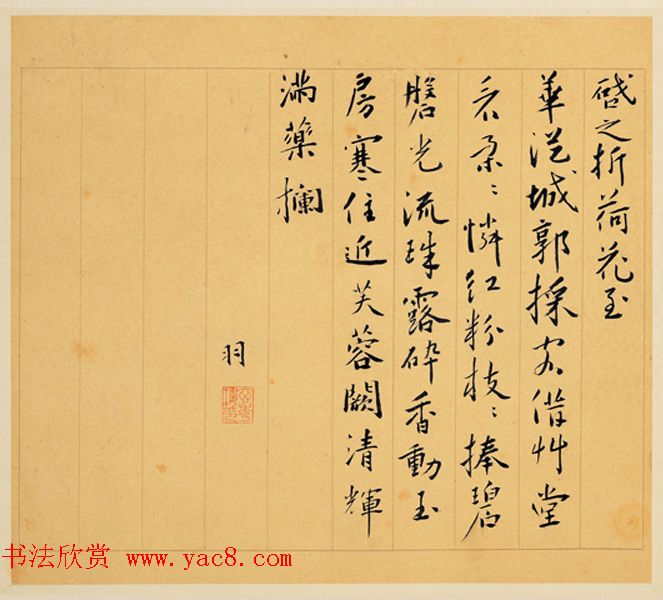 啟之折荷花至
華從城郭採客借艸堂
看朵〻憐紅粉枝〻捧碧
磐光流珠露碎香動玉
房寒住近芙蓉闕清輝
滿藥欄
羽
书法欣赏 www.yac8.com